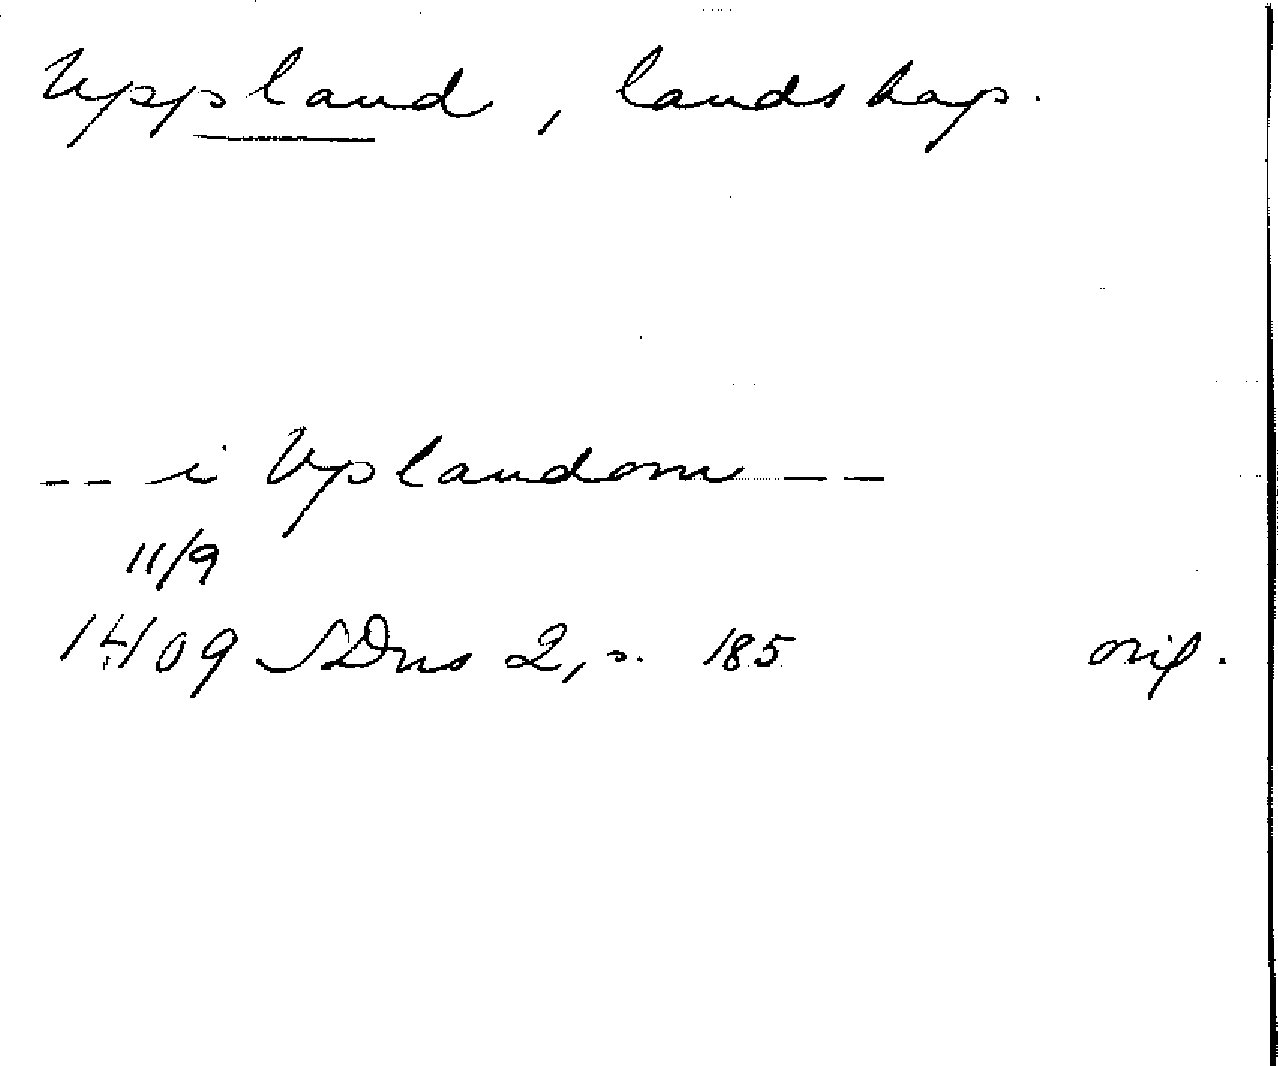 Uppland, landskap.
-- i Uplandom --
11/9
1409 SDns 2, s. 185 orig.